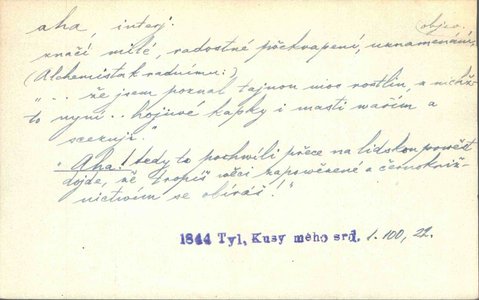 aha, interj.
(objev.
značí milé, radostné překvapení, uznamenání,
(Alchemista k radnímu:)
"... že jsem poznal tajnou moc rostlin, z nichž
to nyní .. hojivé kapky i masti wařím a
scezuji."
"Aha! tedy to pochwíli přece na lidskou powěst
dojde, že tropíš wěci zapowězené a černokněž-
nictwím se obíráš!"
1844 Tyl, Kusy mého srd. 1. 100, 22.